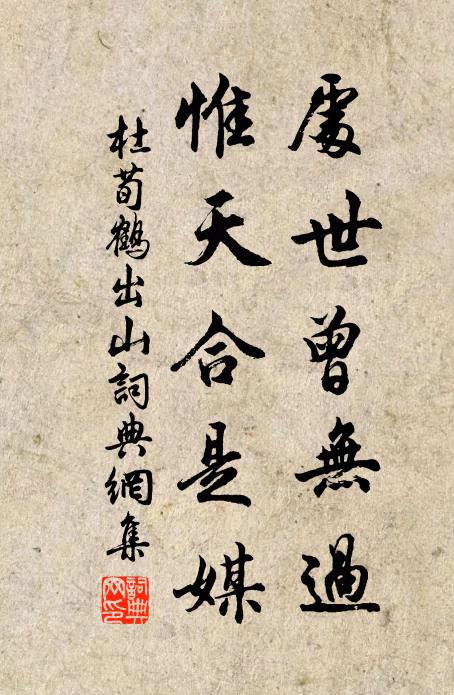 處世曾無過
惟天合是媒
杜荀鶴出山詞典網集
詞典
网印